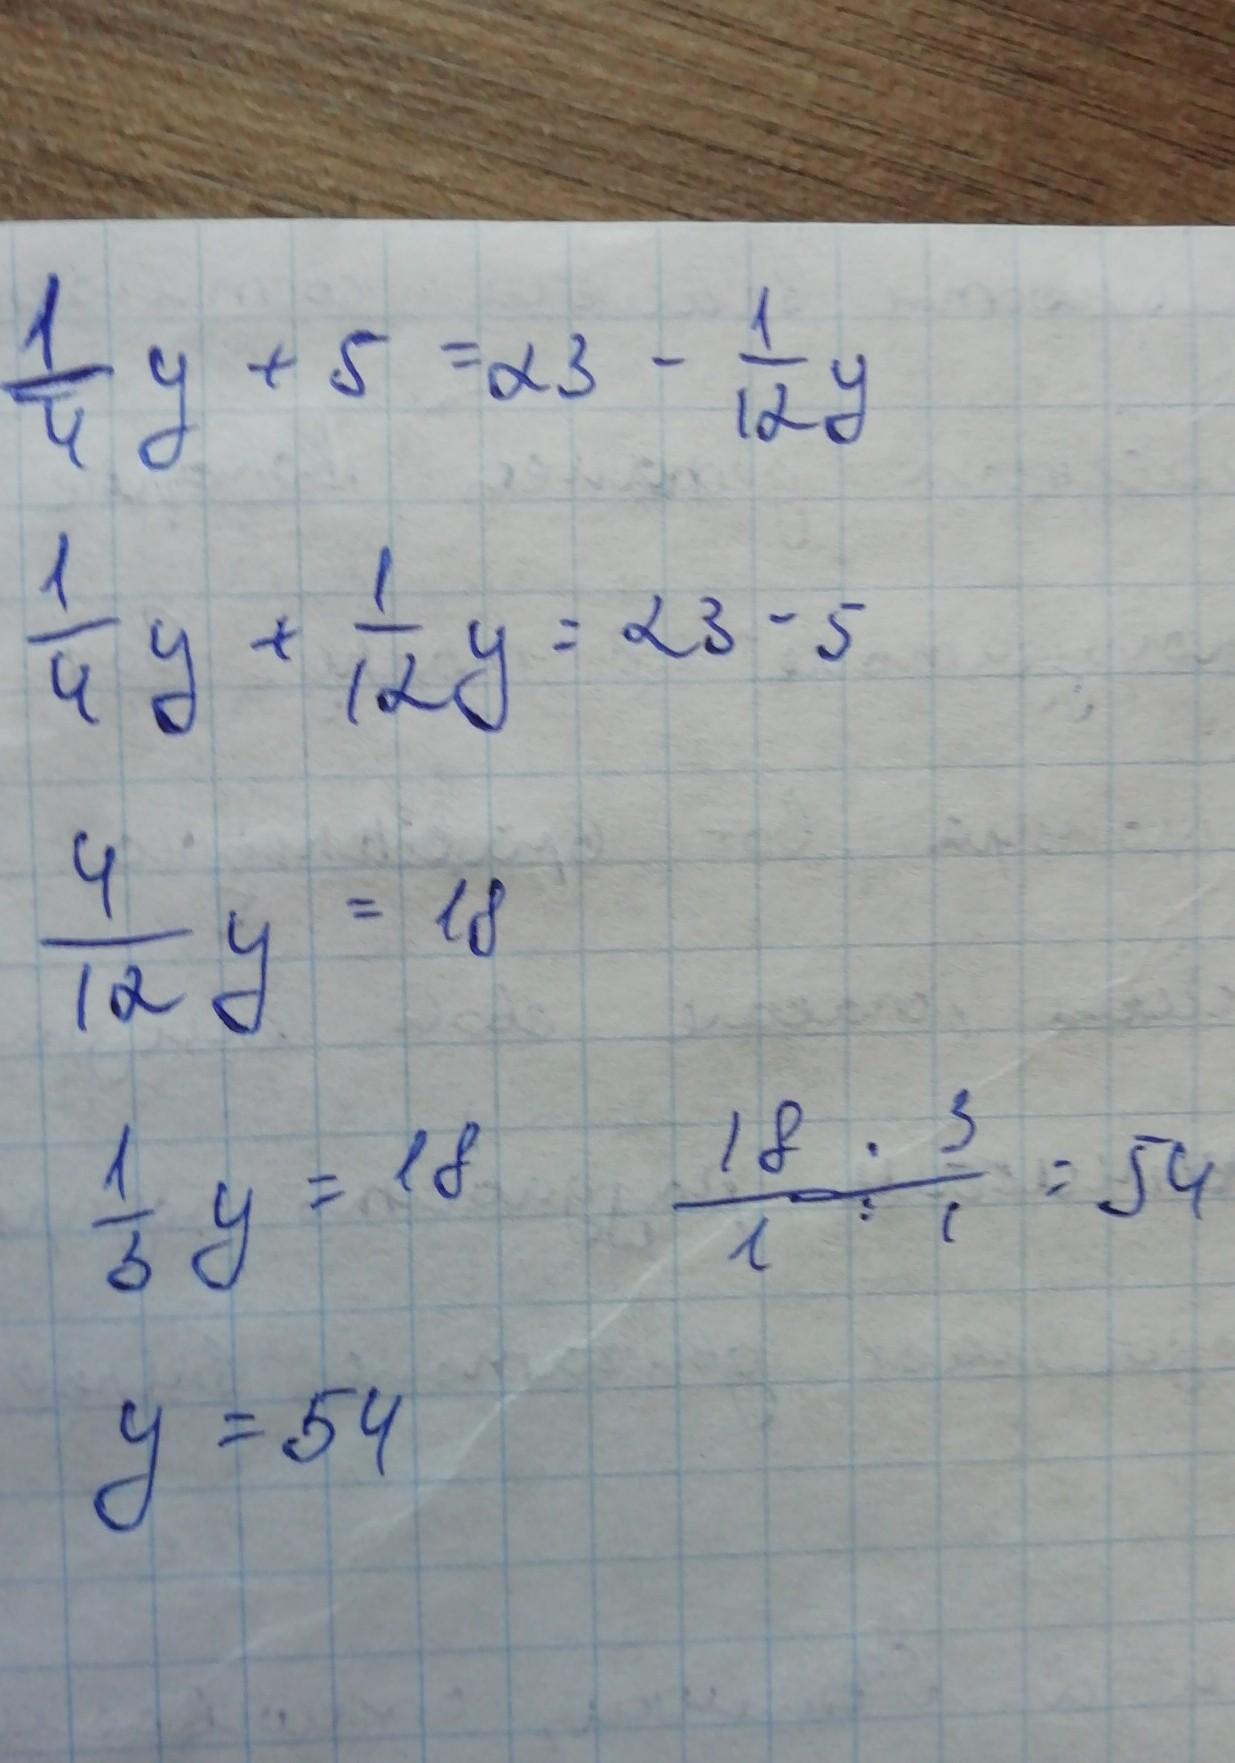 1/4 y + 5 = 23 - 1/12 y
1/4 y + 1/12 y = 23 - 5
4/12 y = 18
1/3 y = 18    18 · 3 / 1 · 1 = 54
y = 54